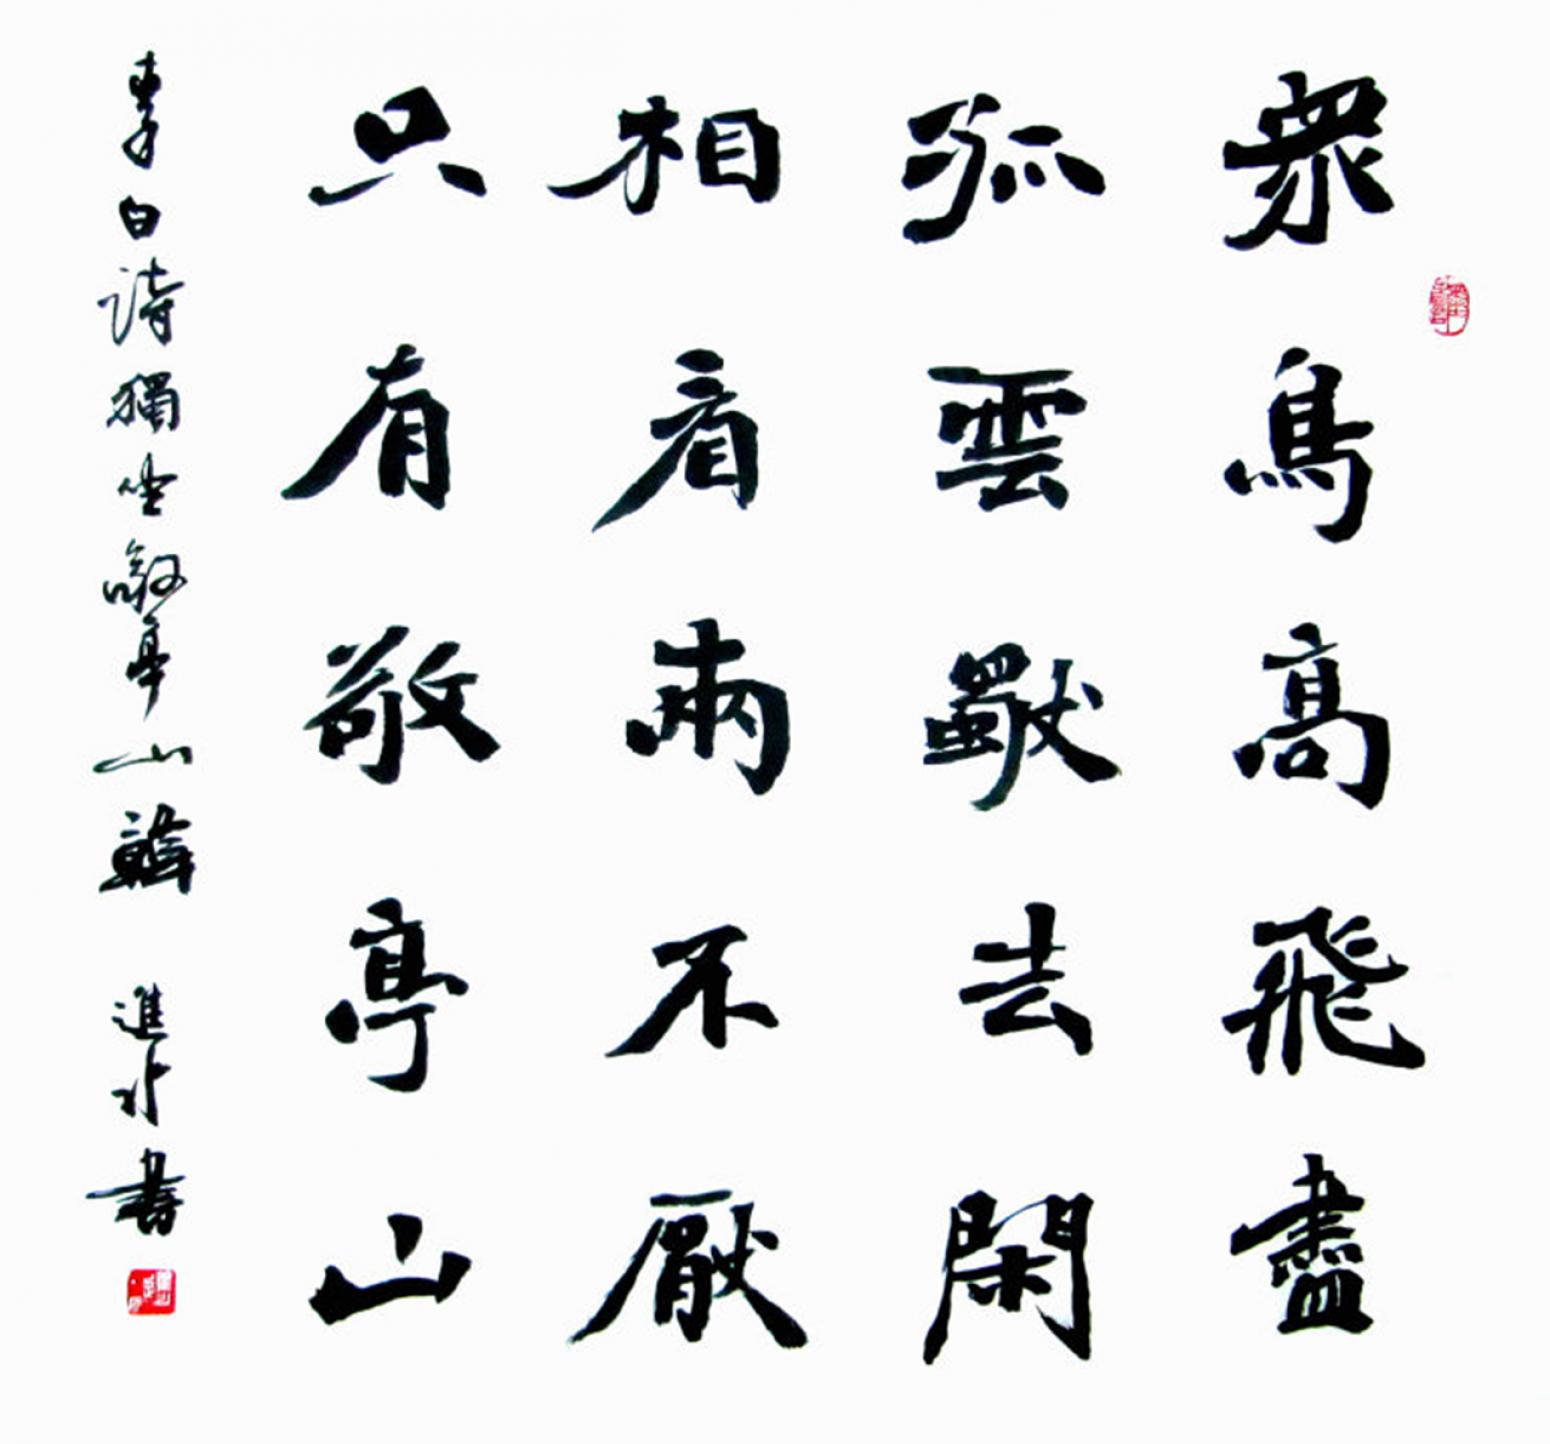 眾鳥高飛盡
孤雲獨去閑
相看兩不厭
只有敬亭山
李白詩獨坐敬亭山 進水書